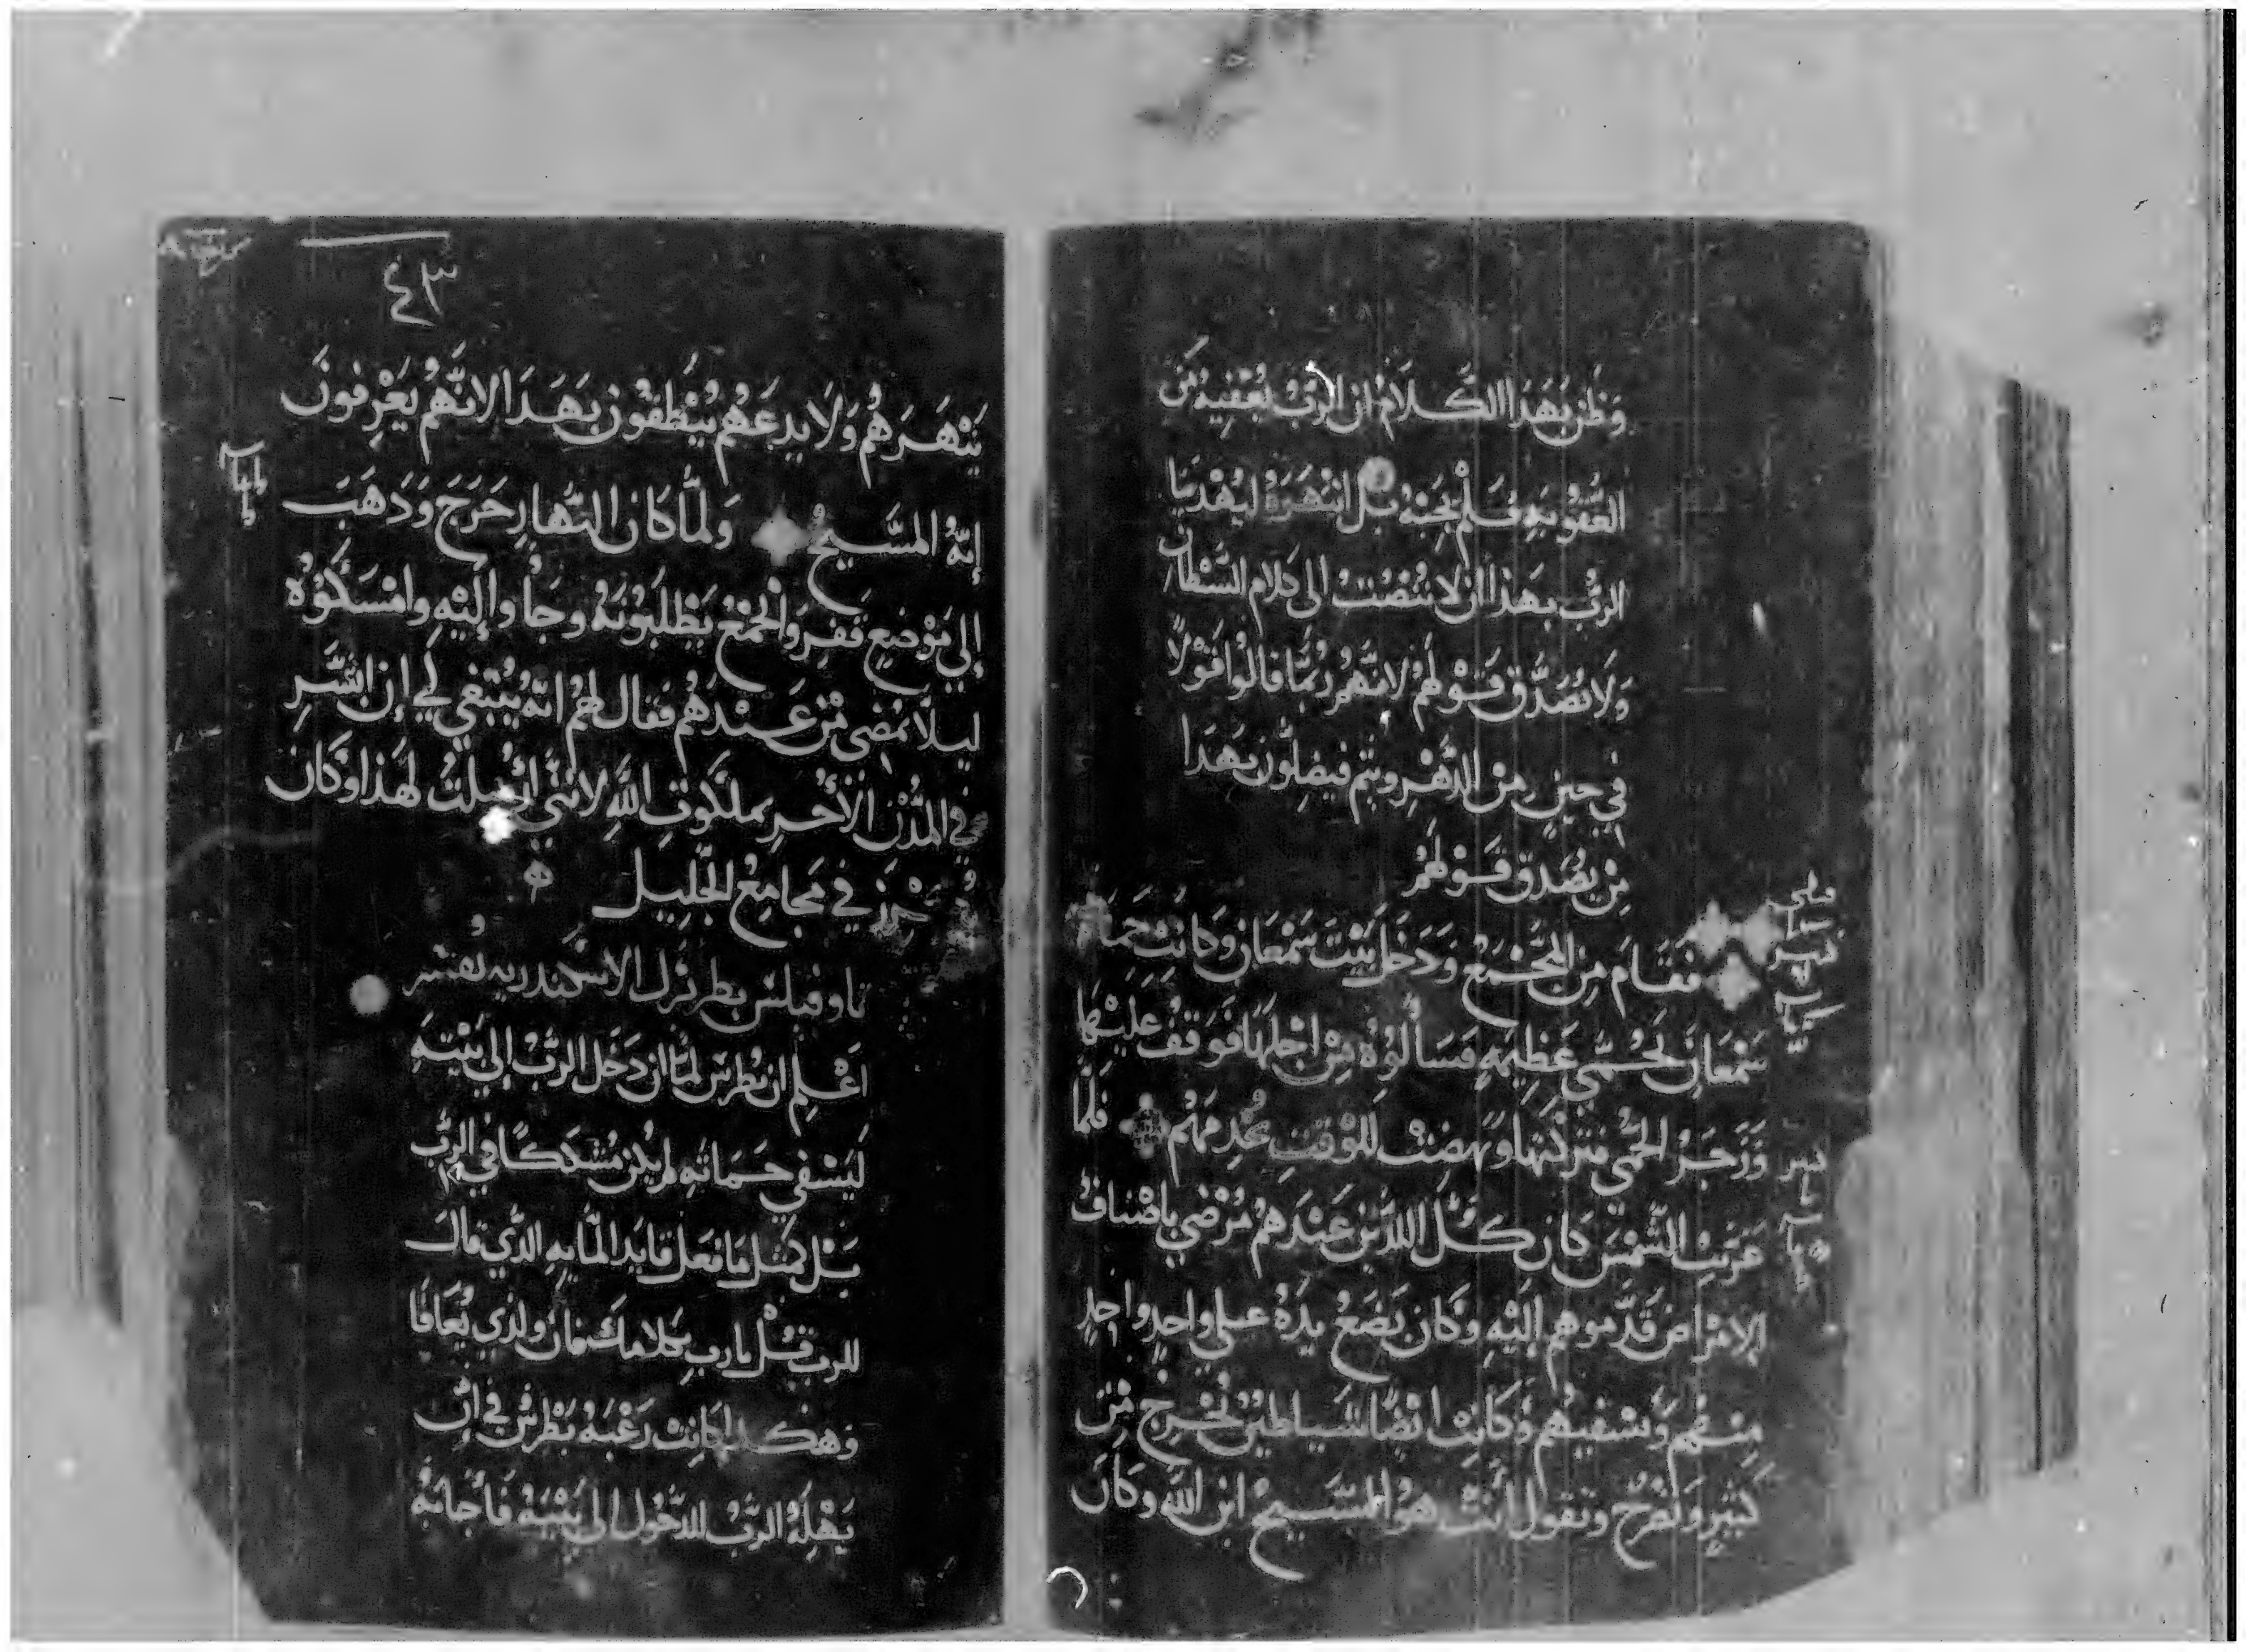 وَظَن بَهَدَا الكَلَامْ ان الرَّبْ يُعْفِيهُ مَن
العُقُوبَةِ فَلَمْ يُجِبْهُ بَل انتَهَرَهُ ليُهْدِينَا
الرَبُ بهَذا ان لا نُنْصُتْ الى كلام الشَّيْطان
وَلَا نُصَدَّق قَوْلهُم لانَّهُمْ رُبَّمَا قالُوا قَوْلًا
في حِينٍ مِنْ الدَّهْرِ ويَتِم فيضِلوُن بهَدَا
مِنْ يُصَدق قَوْلهُمْ
فَقَامَ مِنَ المَجْمَعْ وَدَخَل بَيْتَ سَمْعَان وكانَتْ حَمَاة
سَمْعَان بَحُمَّي عَظِيمَهٍ فَسَألُوهُ مِنْ اجْلِهَا فوَقفْ عليْهَا
وَزَجَرَ الحُمَّي فتَركتها ونهضتْ للوَقتِ تخْدِمَهُمْ فلَمَّا
غَرَبتِ الشَّمْسَ كان كُل الدين عَندَهُمْ مَرْضي باصْنافْ
الامْراض قَدَّموهم إليْهِ وكان يَضَعْ يدَهُ على واحِدٍ واحدٍ
مِنهُم ويَشفيهُم وَكانت ايضًا الشياطِين تُخْرج مِن
كَثيرٍ وتَصْرخ وتقول أنتْ هوَ المَسَّيحْ ابن الله وكَانَ
٤٣
يَنْهَرَهُم وَلَا يدعَهُم يَنْطَقُون بَهَدَا لانَّهُمْ يَعْرِفونَ
إنّهُ المسَّيحْ وَلمَّا كَان النَّهار خَرَجَ وَدَهَبَ
إلى مَوْضِعٍ قفِرٍ وَالجَمْعْ يَطلبُونَهُ وجَأوا إليْهِ وامْسَكوُهُ
ليلَّا يَمْضى مِن عَندَهُم فقال لهُمْ انّهُ يَنْبَغي لي إن ابَشِّر
في المُدُنْ الأُخَر بملكوتِ اللَّهِ لانّني ارسِلتُ لهَذا وكَان
يكرز في مَجامِعْ الجَليل
تاوفيلس بطريرك الاسكندريه يُفسّر
اعْلم ان بُطرس لمَّا ان دَخَل الرَّبْ إلي بَيْته
ليَشفي حَمَاتهِ لم يكن مُتشَككًا في الرَّب
بَل كمثل مَا فعَل قايد المَّايهِ الدَّي قالَ
للرب قُل يا رب بكلامك فان ولدي يُعَافَا
وَهكدا كانت رَغْبَةُ بَطرسْ في ان
يَهْلِهُ الرَّبْ للدخُول الى بَيْتِهِ فأجابَهُ